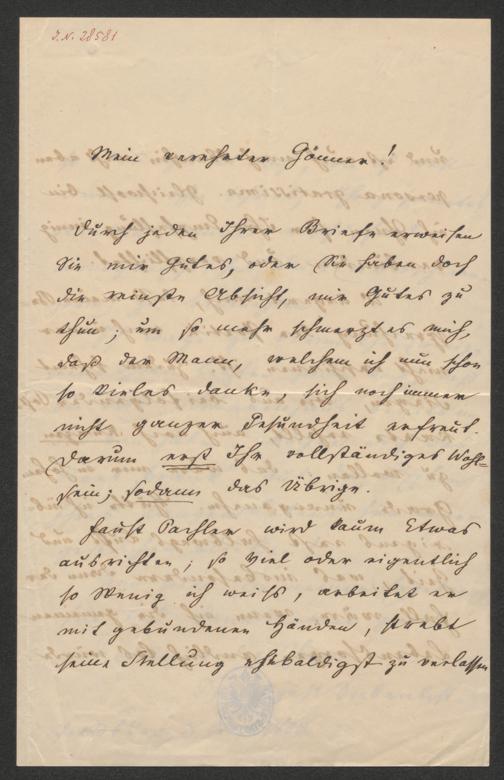 J.N. 28581
Mein verehrter Gönner!
Durch jeden Ihrer Briefe erweisen
Sie mir Gutes, oder Sie haben doch
die reinste Absicht, mir Gutes zu
thun; um so mehr schmerzt es mich,
daß der Mann, welchem ich nun schon
so Vieles danke, sich noch immer
nicht ganzer Gesundheit erfreut.
Darum erst Ihr vollständiges Wohl=
sein; sodann das Übrige.
Faust Pachler wird kaum Etwas
ausrichten; so viel oder eigentlich
so Wenig ich weiß, arbeitet er
mit gebundenen Händen, strebt
seine Stellung ehebaldigst zu verlassen